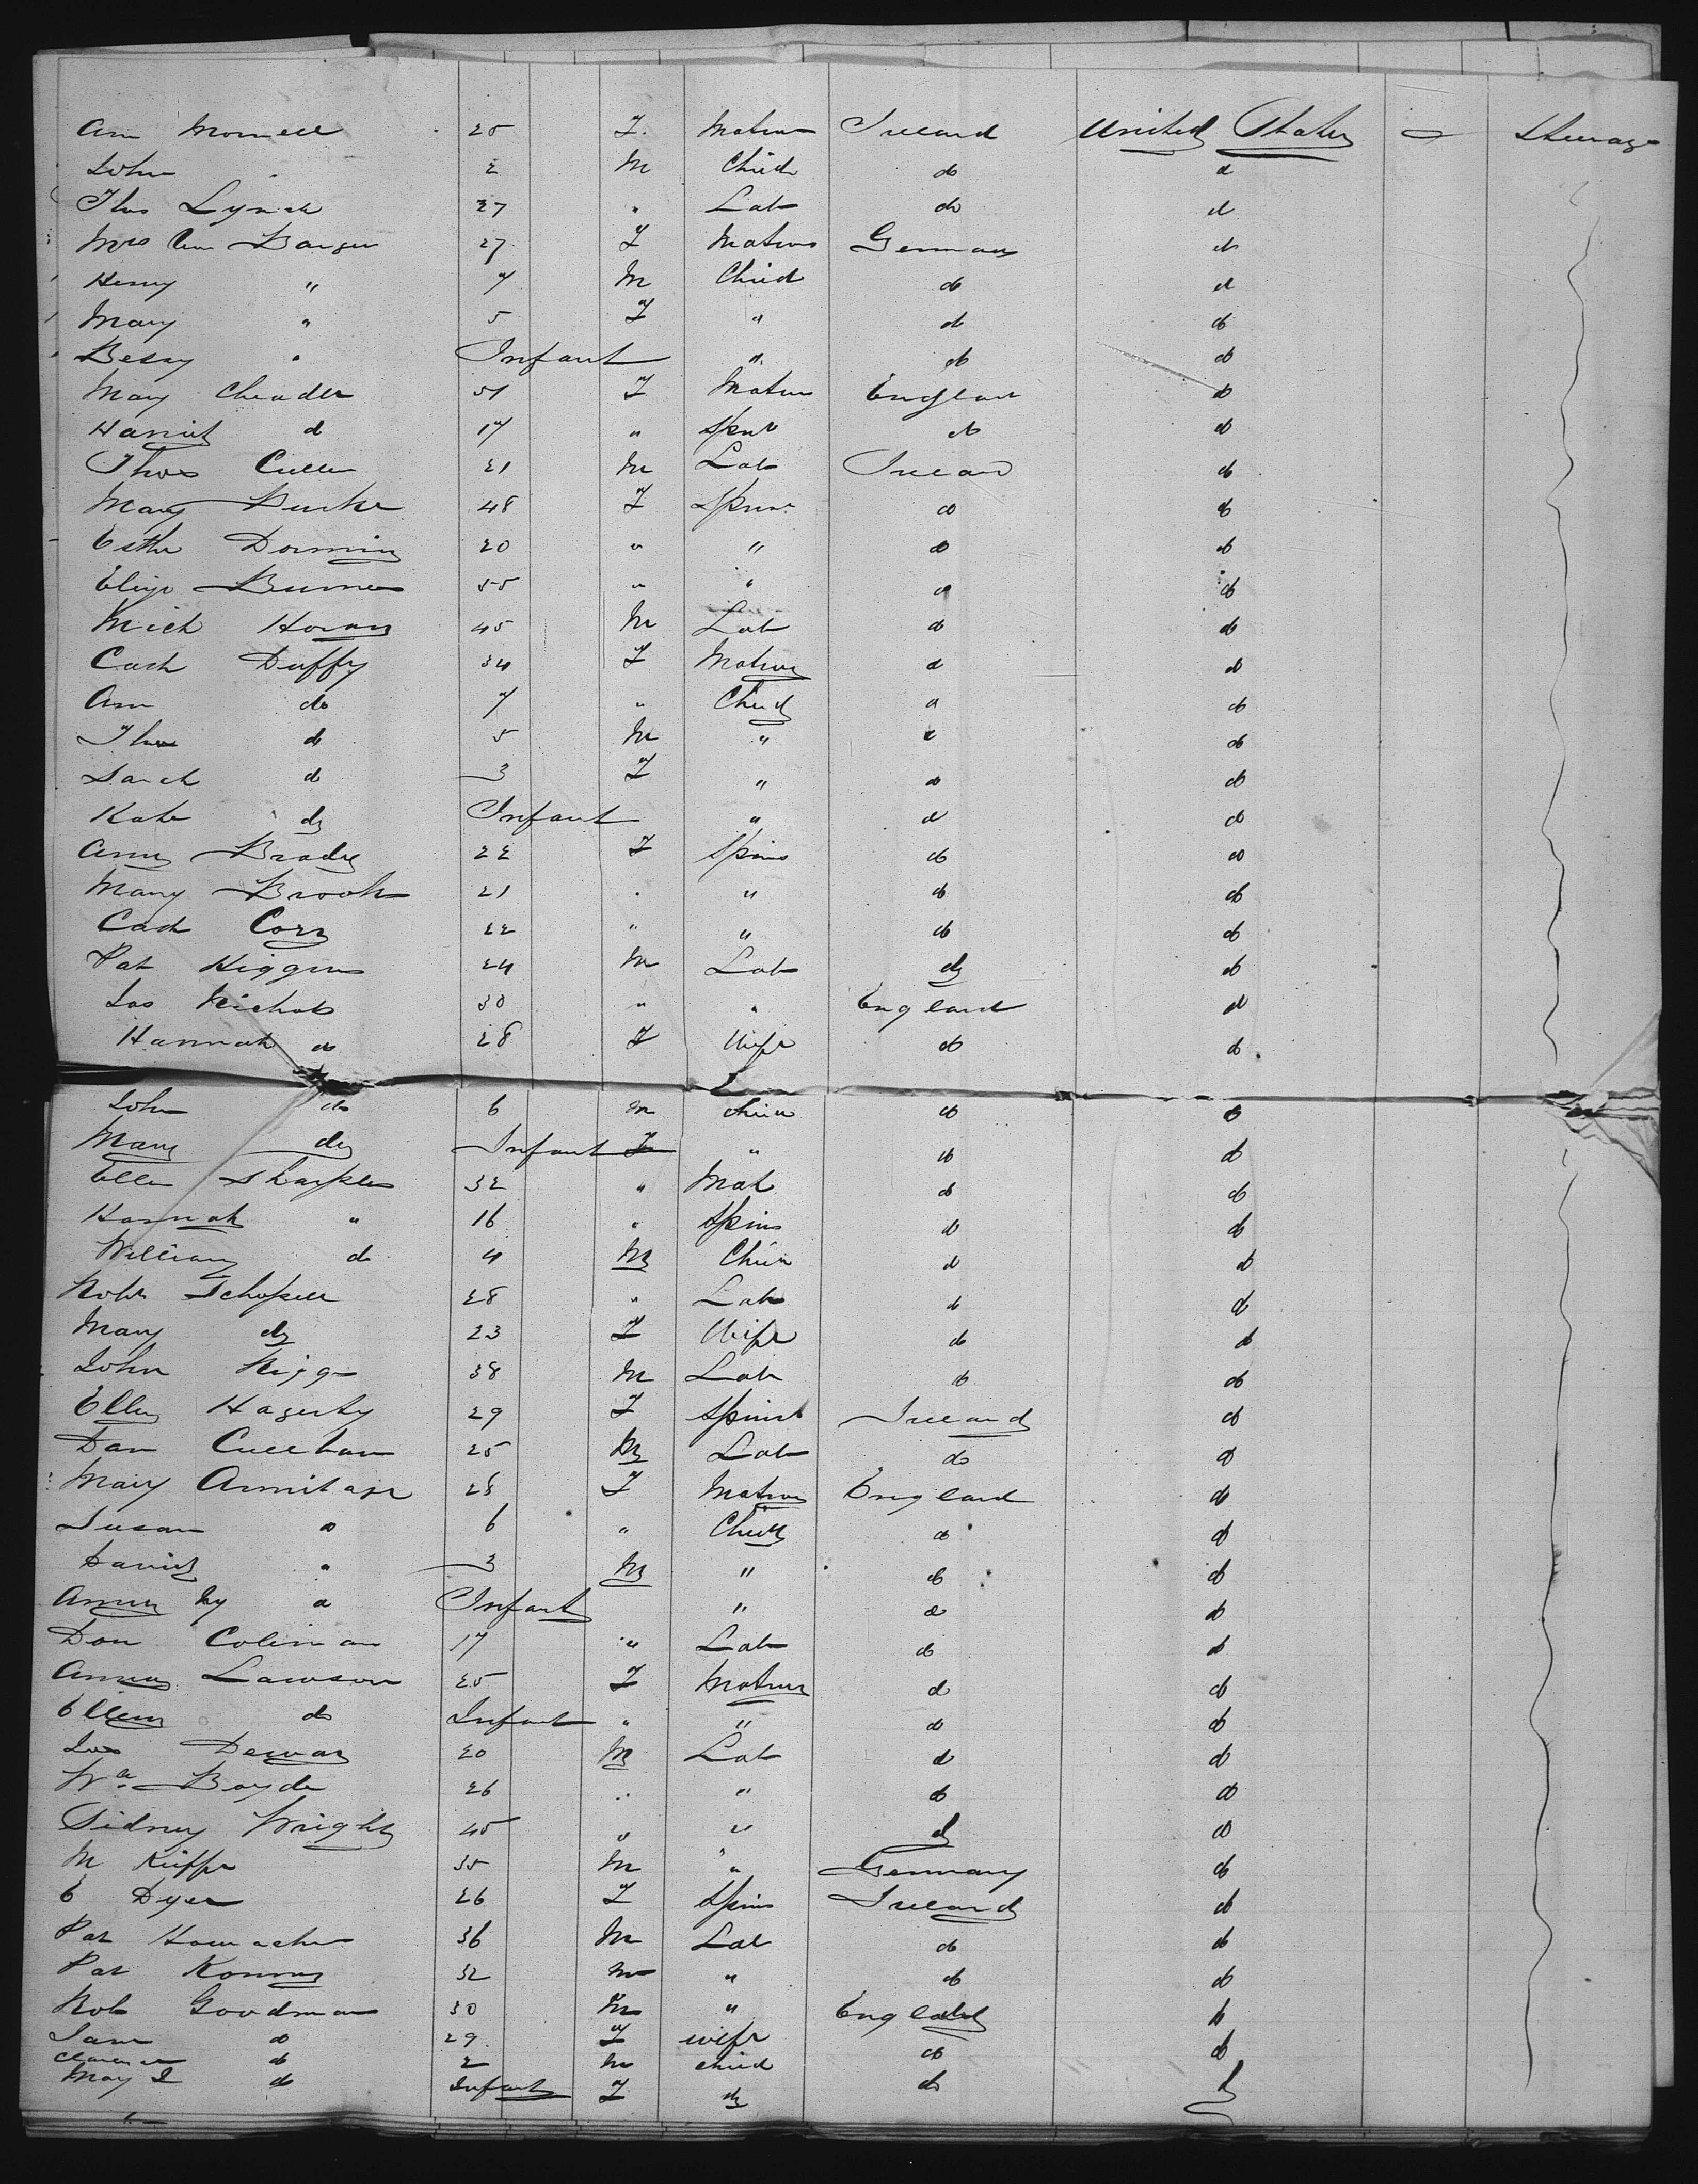 Ann 25 F. Matron Ireland United States Steerage
John 2 M Child do do
Thos Lynch 27 " Lab do do
Mrs Ann 27 F Matron Germany do
Henry " 7 M Child do do
Mary " 5 F " do do
Betsy " Infant " do do
Mary 51 F Matron England do
Harriet do 17 " Spins do do
Thos Cullen 21 M Lab Ireland do
Mary Burke 48 F Spins do do
Esther 20 " " do do
Eliza 55 " " do do
Mich Horan 45 M Lab do do
Cath Duffy 34 F Matron do do
Ann do 7 " Child do do
Thos do 5 M " do do
Sarah do 3 F " do do
Kate do Infant " do do
Ann Brady 22 F Spins do do
Mary Brook 21 " " do do
Cath Corr 22 " " do do
Pat Higgins 24 M Lab do do
Jas Nichols 30 " " England do
Hannah do 28 F Wife do do
John do 6 M Child do do
Mary do Infant F " do do
Ellen Sharples 32 " Mat do do
Hannah " 16 " Spins do do
William do 4 M Child do do
Robt 28 " Lab do do
Mary do 23 F Wife do do
John 38 M Lab do do
Ellen Hagerty 29 F Spinst Ireland do
Dan 25 M Lab do do
Mary Armitage 28 F Matron England do
Susan do 6 " Child do do
3 M " do do
do Infant " do do
Coleman 17 " Lab do do
Anna Lawson 25 F Matron do do
Ellen do Infant " " do do
Jas Dewar 20 M Lab do do
Wm Boyde 26 " " do do
Sidney Wright 45 " " do do
M 35 M " Germany do
E Dyer 26 F Spins Ireland do
Pat 36 M Lab do do
Pat 32 M " do do
Rob Goodman 30 M " England do
Jane do 29 F wife do do
Clarence do 2 M child do do
May I do Infant F do do do